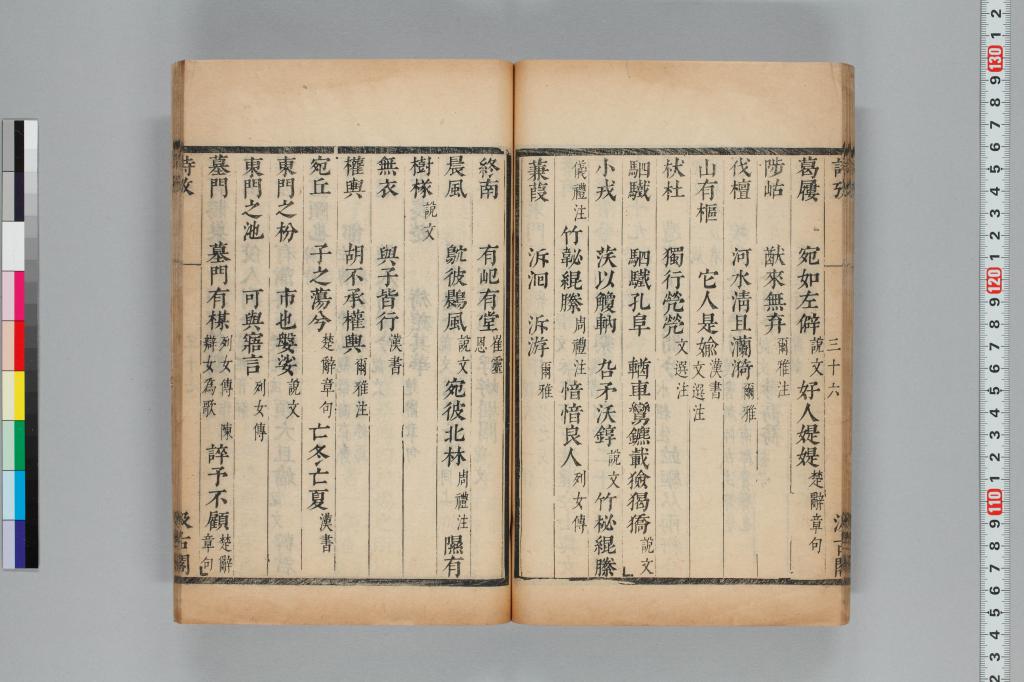 詩攷
三十六
汲古閣
葛屨 宛如左僻說文好人媞媞楚辭章句
陟岵 猷來無弃爾雅注
伐檀 河水清且瀾漪爾雅
山有樞 它人是媮漢書文選注
杕杜 獨行煢煢文選注
駟驖 駟驖孔阜 輶車鸞鑣載獫猲獢說文
小戎 泼以觼軜 厹矛沃錞說文竹柲緄縢
儀禮注竹䪐緄縢周禮注愔愔良人列女傳
蒹葭 泝洄 泝游爾雅
終南 有屺有堂崔靈恩
晨風 鴥彼鷐風說文宛彼北林周禮注隰有
樹檖說文
無衣 與子皆行漢書
權輿 胡不承權輿爾雅注
宛丘 子之蕩兮楚辭章句亡冬亡夏漢書
東門之枌 市也媻娑說文
東門之池 可與寤言列女傳
墓門 墓門有楳列女傳陳辯女為歌誶予不顧楚辭章句
詩攷
汲古閣